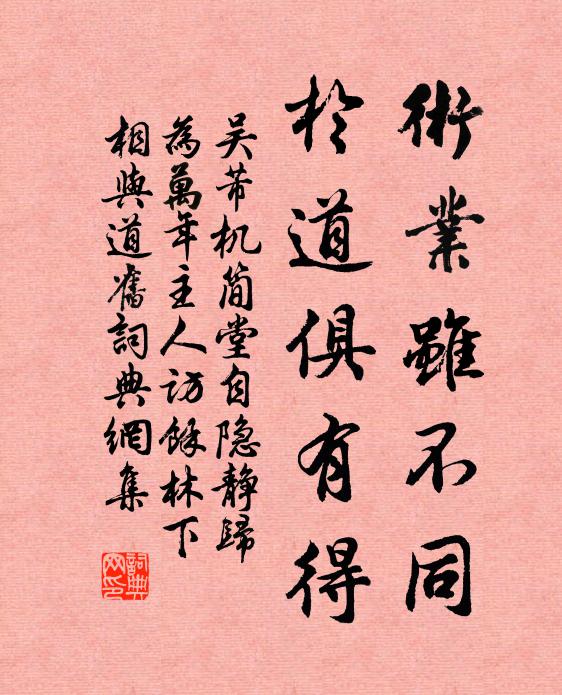 術業雖不同
於道俱有得
吴芾机简堂自隐静歸
為萬年主人訪餘林下
相與道舊詞典網集
詞典
网印